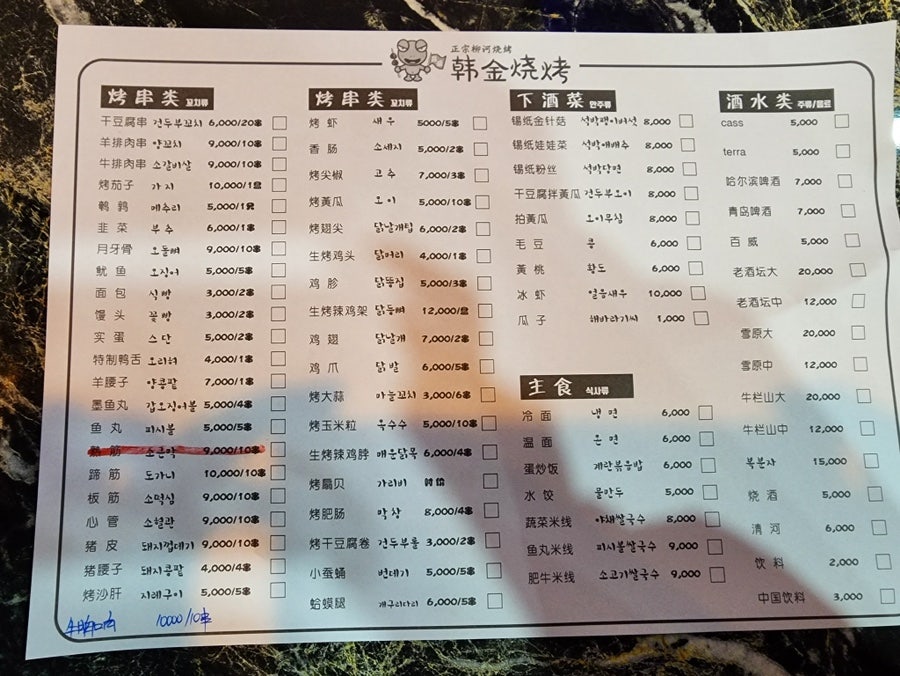 正宗柳河烧烤
韩金烧烤
烤串类 꼬치류
干豆腐串 건두부꼬치 6,000/20串
羊排肉串 양꼬치 9,000/10串
牛排肉串 소갈비살 9,000/10串
烤茄子 가지 10,000/1盘
鹌鹑 메추리 5,000/1只
韭菜 부추 6,000/1串
月牙骨 오돌뼈 9,000/10串
鱿鱼 오징어 5,000/5串
面包 식빵 3,000/2串
馒头 꽃빵 3,000/2串
实蛋 스단 5,000/2串
特制鸭舌 오리혀 4,000/1串
羊腰子 양콩팥 7,000/1串
墨鱼丸 갑오징어볼 5,000/4串
鱼丸 피시볼 5,000/5串
熟筋 소근막 9,000/10串
蹄筋 도가니 10,000/10串
板筋 소떡심 9,000/10串
心管 소혈관 9,000/10串
猪皮 돼지껍데기 9,000/10串
猪腰子 돼지콩팥 4,000/4串
烤沙肝 지레구이 5,000/5串
10000/10串
烤串类 꼬치류
烤虾 새우 5000/5串
香肠 소세지 5,000/2串
烤尖椒 고추 7,000/3串
烤黄瓜 오이 5,000/10串
烤翅尖 닭날개팁 6,000/2串
生烤鸡头 닭머리 4,000/1串
鸡胗 닭똥집 5,000/3串
生烤辣鸡架 닭등뼈 12,000/盘
鸡翅 닭날개 7,000/2串
鸡爪 닭발 6,000/5串
烤大蒜 마늘꼬치 3,000/6串
烤玉米粒 옥수수 5,000/10串
生烤辣鸡脖 매운닭목 6,000/4串
烤扇贝 가리비 时价
烤肥肠 막창 8,000/4串
烤干豆腐卷 건두부롤 3,000/2串
小蚕蛹 번데기 5,000/5串
蛤蟆腿 개구리다리 6,000/5串
下酒菜 안주류
锡纸金针菇 석박팽이버섯 8,000
锡纸娃娃菜 석박애배추 8,000
锡纸粉丝 석박당면 8,000
干豆腐拌黄瓜 건두부오이 8,000
拍黄瓜 오이무침 8,000
毛豆 콩 6,000
黄桃 황도 6,000
冰虾 얼음새우 10,000
瓜子 해바라기씨 1,000
主食 식사류
冷面 냉면 6,000
温面 온면 6,000
蛋炒饭 계란볶음밥 6,000
水饺 물만두 5,000
蔬菜米线 야채쌀국수 8,000
鱼丸米线 피시볼쌀국수 9,000
肥牛米线 소고기쌀국수 9,000
酒水类 주류/음료
cass 5,000
terra 5,000
哈尔滨啤酒 7,000
青岛啤酒 7,000
百威 5,000
老酒坛大 20,000
老酒坛中 12,000
雪原大 20,000
雪原中 12,000
牛栏山大 20,000
牛栏山中 12,000
복분자 15,000
烧酒 5,000
清河 6,000
饮料 2,000
中国饮料 3,000